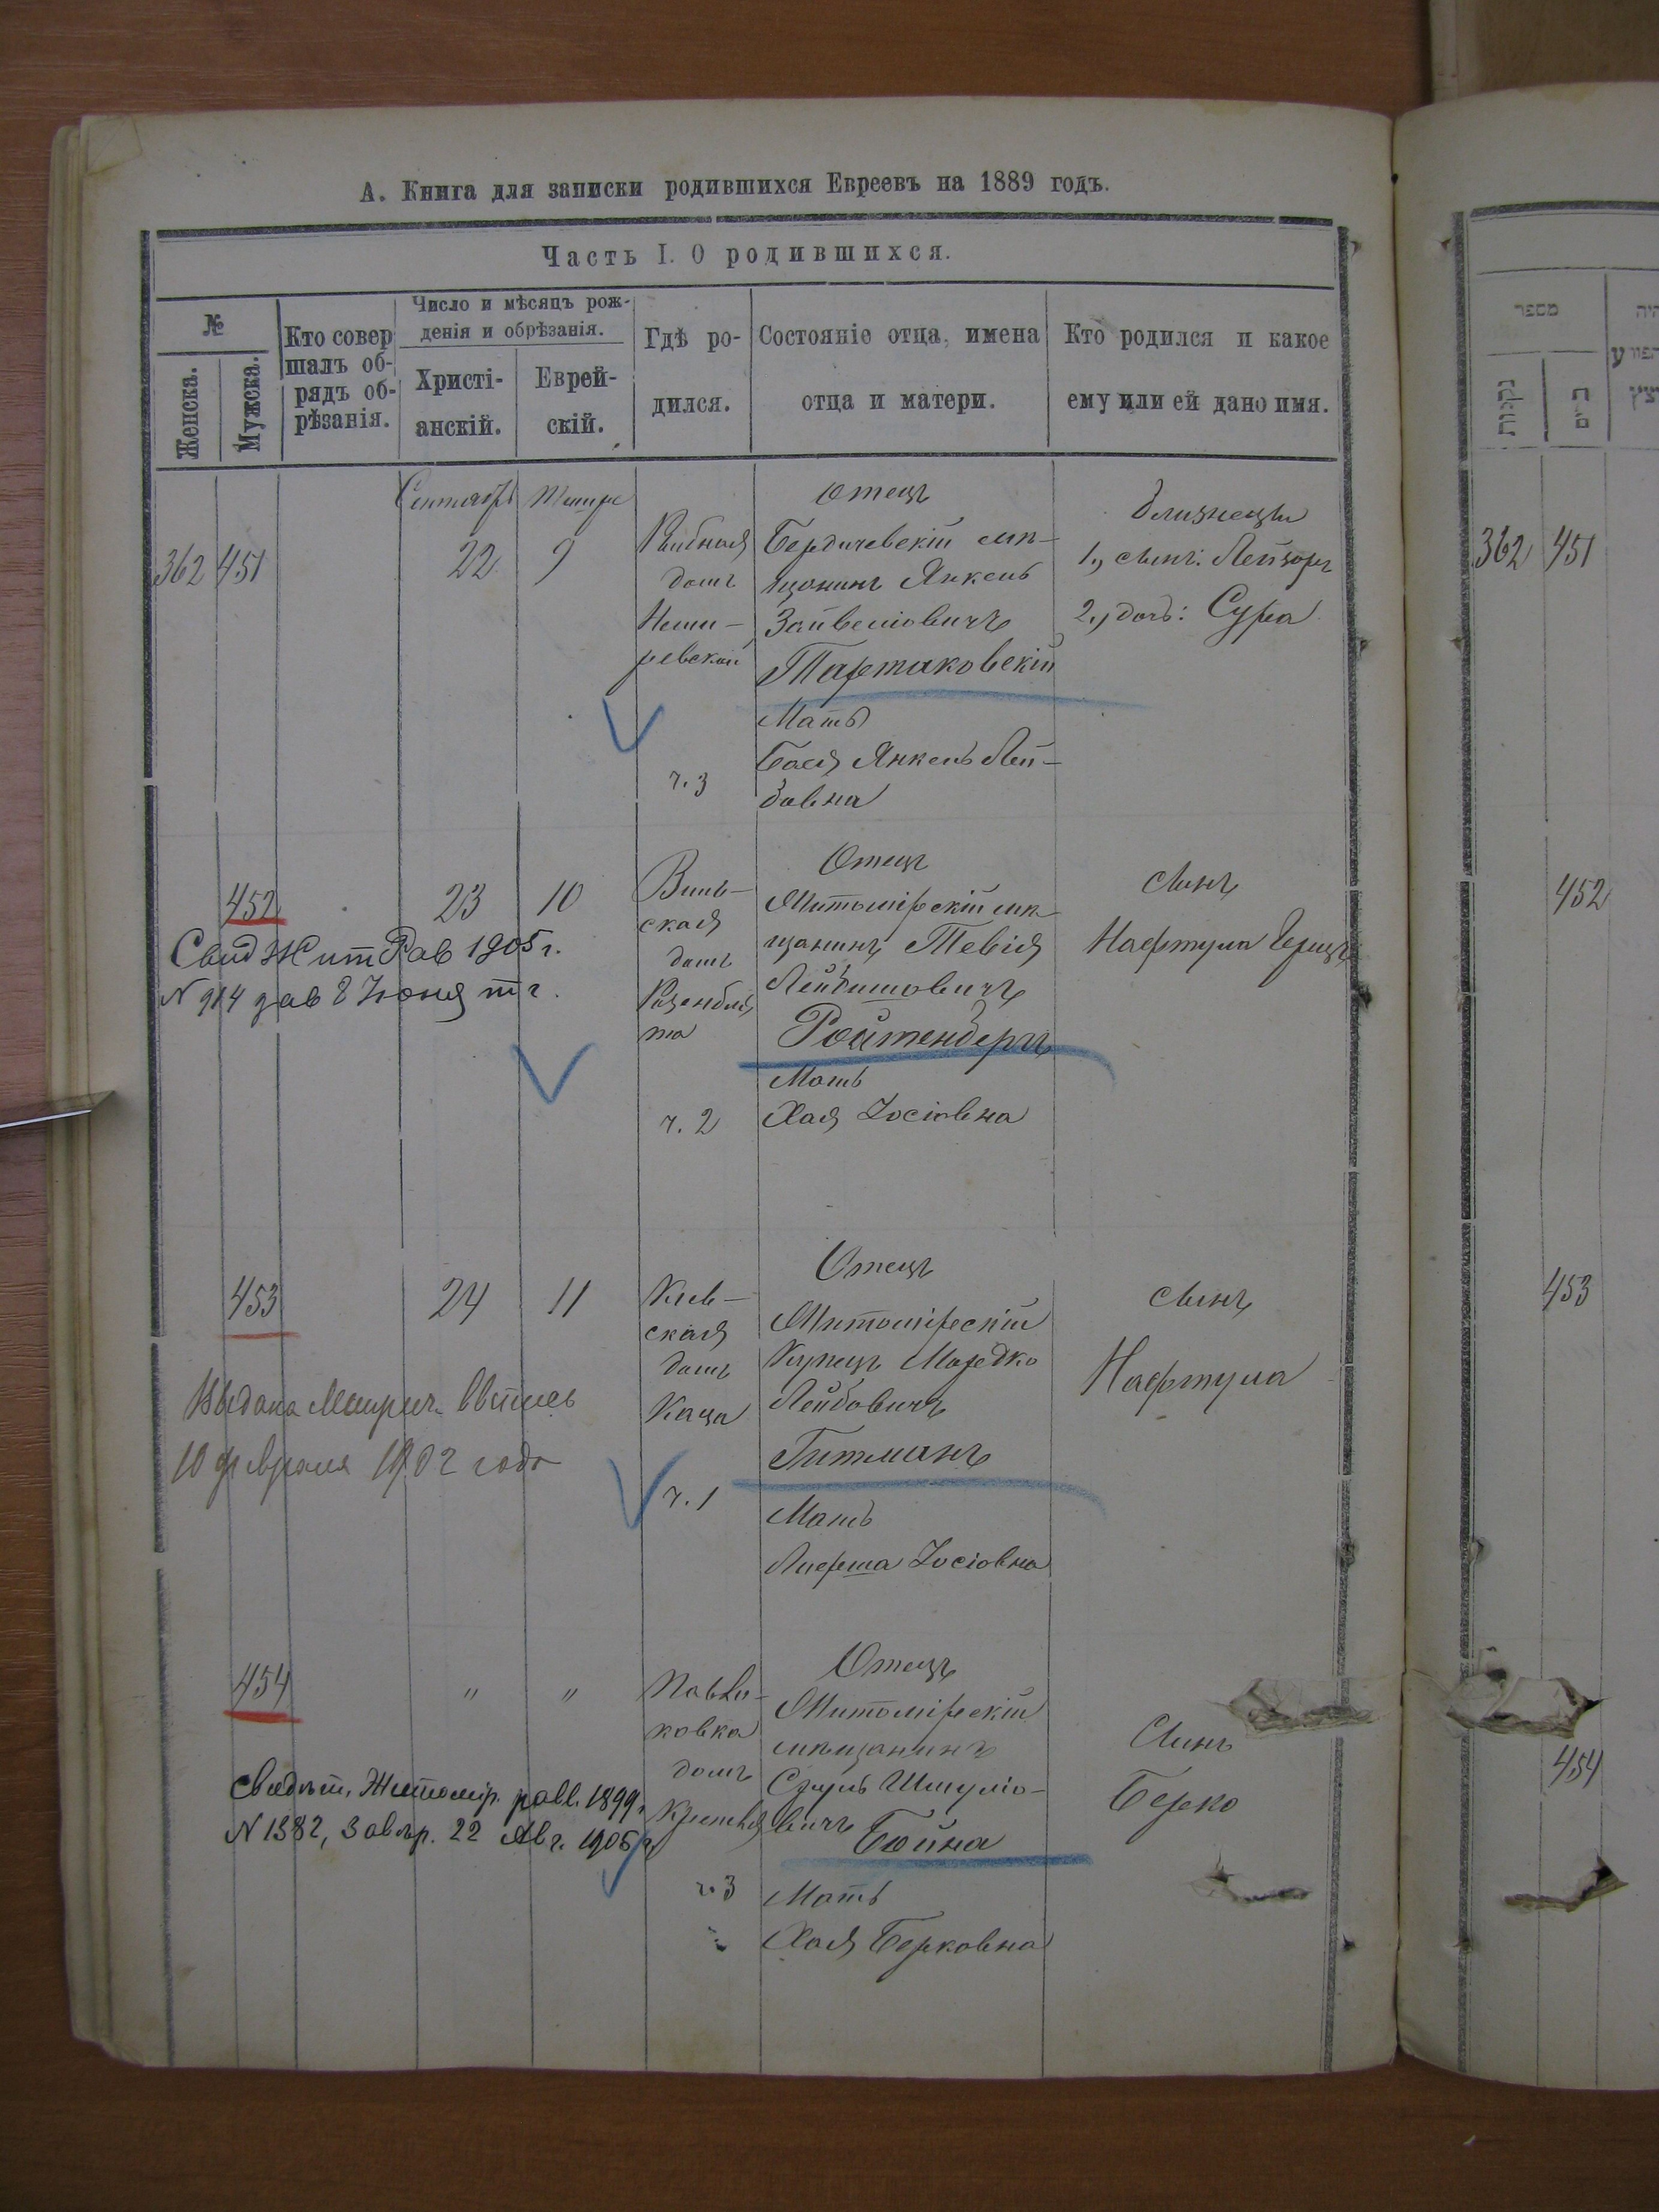 А. Книга для записки родившихся Евреевъ на 1889 годъ.
Часть I. О родившихся.
№
Женска.
Мужска.
Кто совер
шалъ об-
рядъ об-
рѣзанія.
Число и мѣсяцъ рож-
денія и обрѣзанія.
Христі-
анскій.
Еврей-
скій.
Гдѣ ро-
дился.
Состояніе отца, имена
отца и матери.
Кто родился и какое
ему или ей дано имя.
Сентябрь Тишре
362 451 22 9
Рыбная
домъ
Неми-
ровской
ч. 3
Отецъ
Бердичевскій мѣ-
щанинъ Янкель
Зайвеліовичъ
Тартаковскій
Мать
Бася Янкель Лей-
бовна
близнецы
1., сынъ: Лейзоръ
2., дочь: Сура
452 23 10
Свид Жит Рав 1905 г.
N 914 дав 8 Іюня т г.
Виль-
ская
домъ
Розенбля
та
ч. 2
Отецъ
Житомірскій мѣ-
щанинъ Тевія
Лейбишовичъ
Ройтенберг
Мать
Хая Іосіовна
сынъ
Нафтула Герцъ
453 24 11
Выдана Метрич.
10 февраля 1902 года
Кіев-
ская
домъ
Каца
ч. 1
Отецъ
Житомірскій
Купецъ Мордко
Лейбовичъ
Гитманъ
Мать
Іосіовна
сынъ
Нафтула
454 " "
Свидѣт. Житомір. равв. 1899 г.
N 1382, Завѣр. 22 Авг. 1905 г.
Павли-
ковка
домъ
ч. 3
Отецъ
Житомірскій
мѣщанинъ
Сруль Шмуліо-
вичъ
Бойна
Мать
Хая Берковна
Сынъ
Берко
מספר
נקבות
362 451
452
453
454